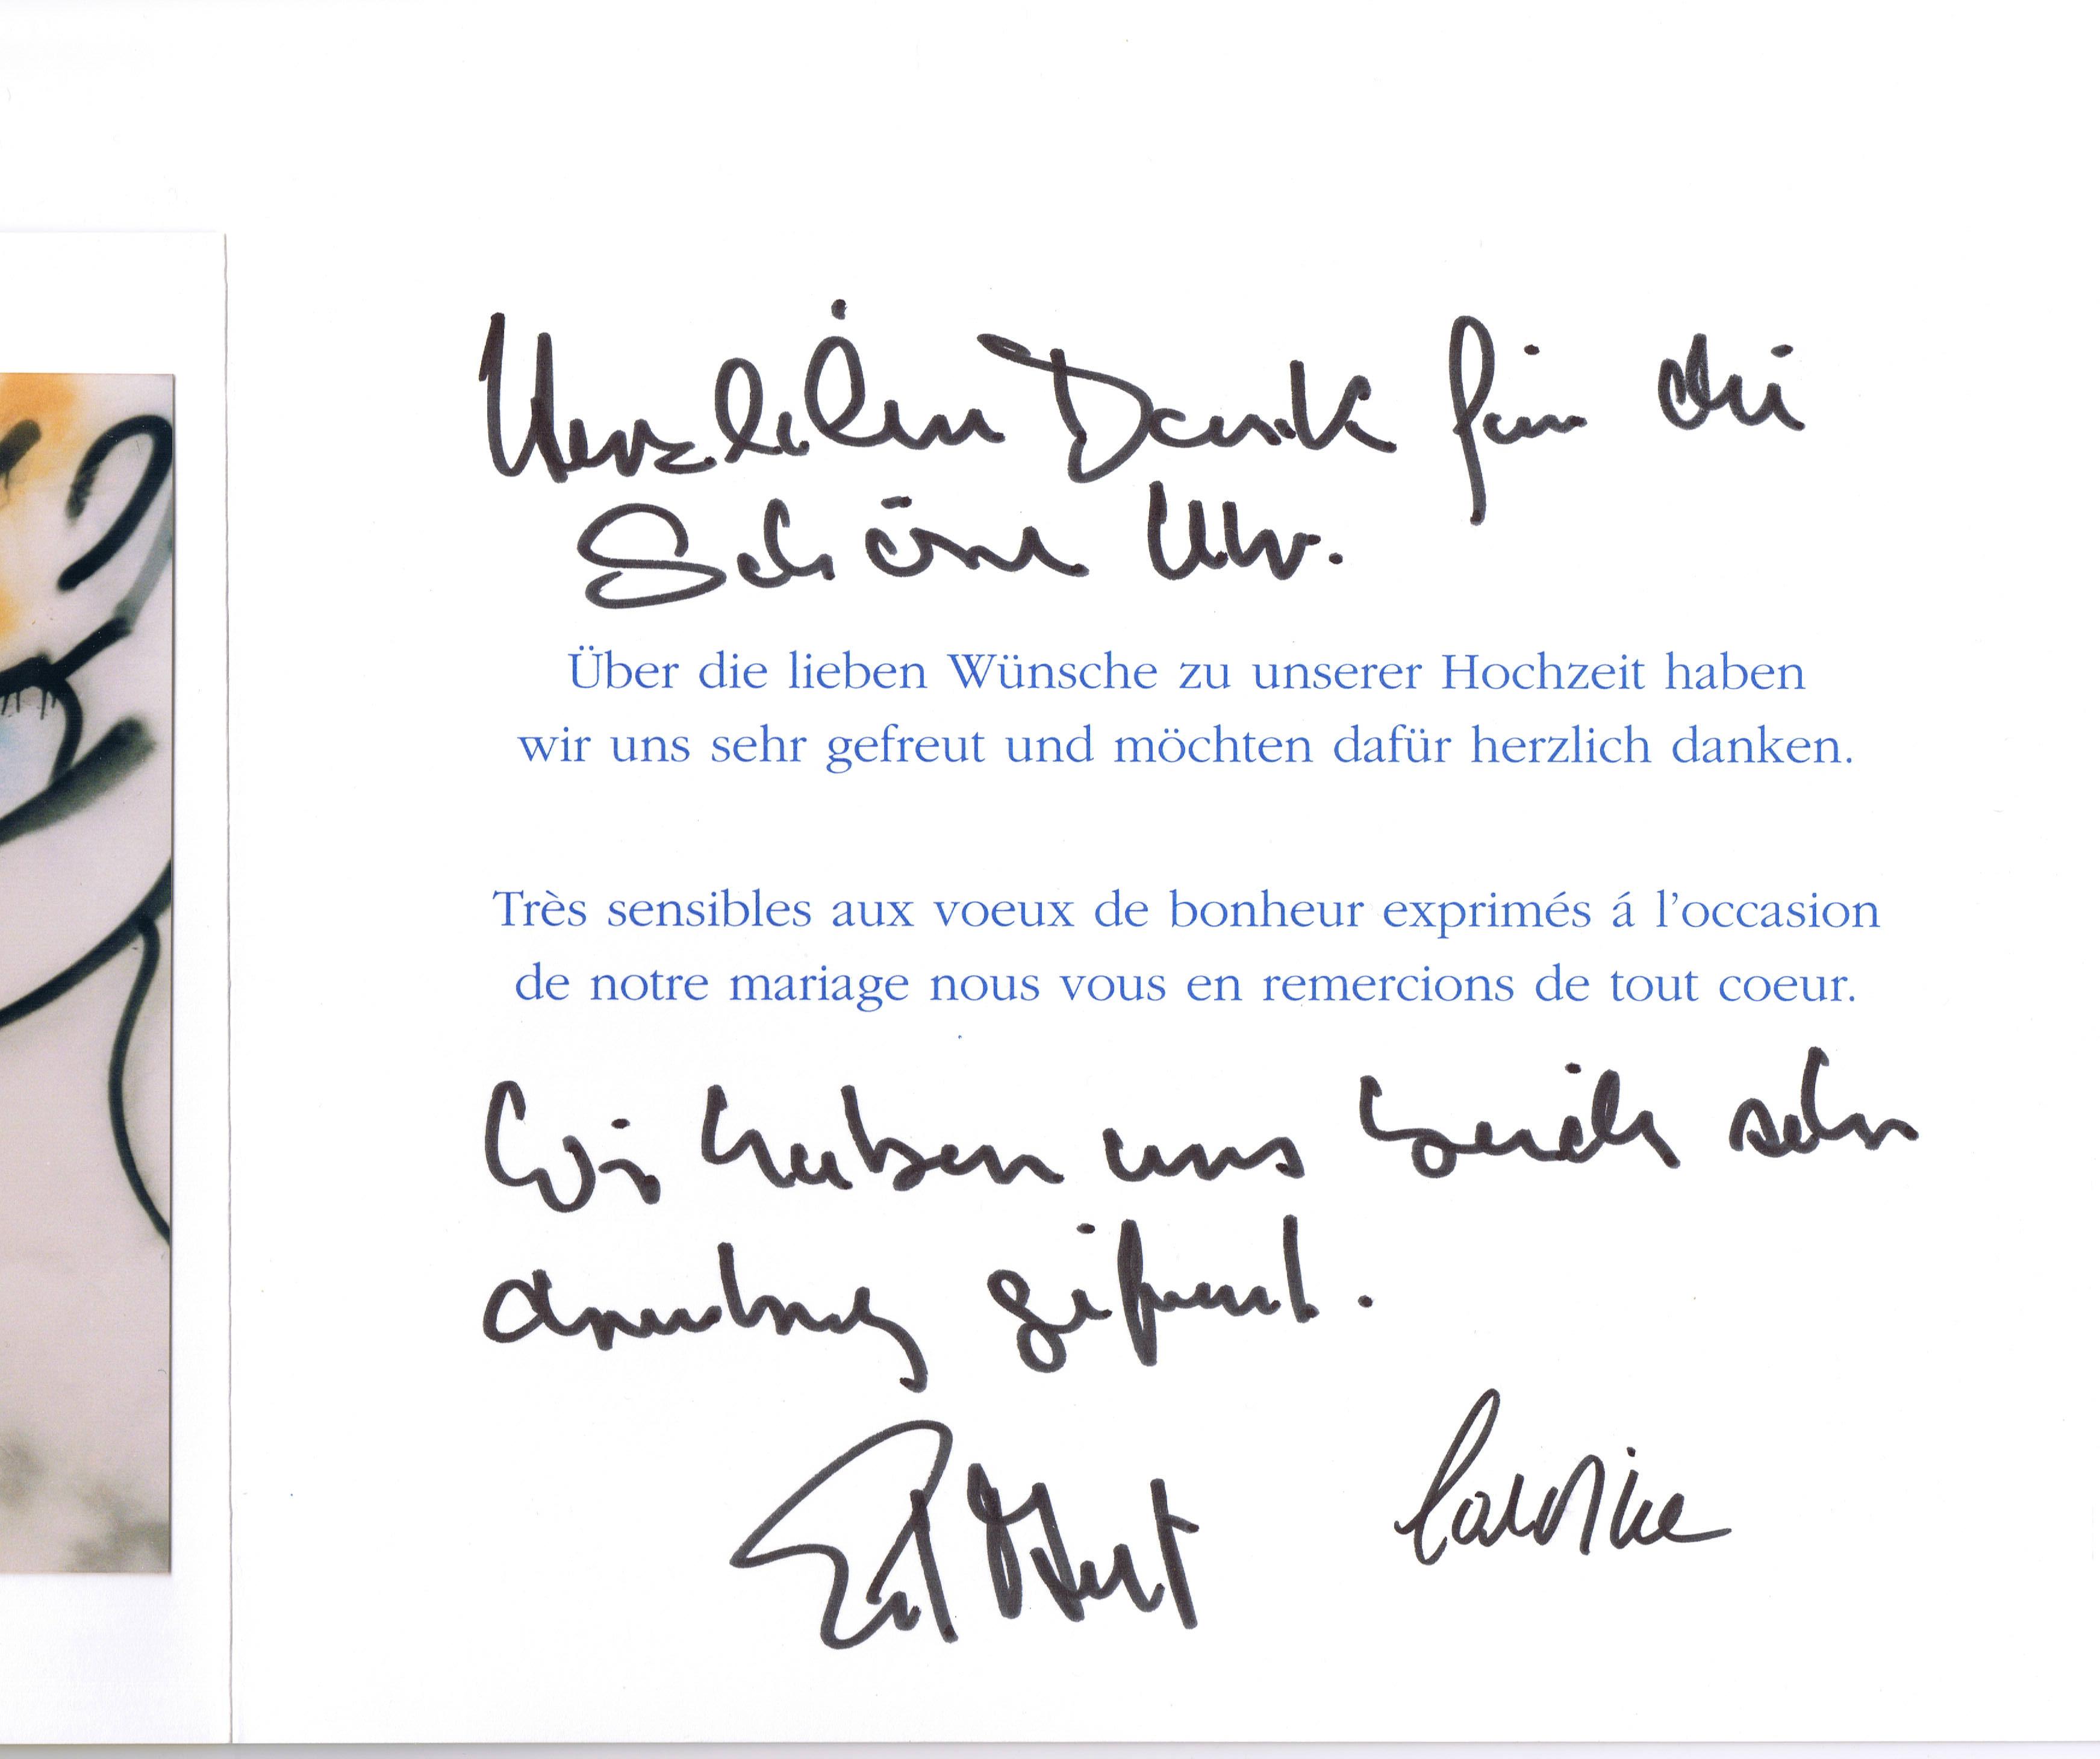 Herzlichen Dank für die
Schöne Uhr.
Über die lieben Wünsche zu unserer Hochzeit haben
wir uns sehr gefreut und möchten dafür herzlich danken.
Très sensibles aux voeux de bonheur exprimés á l'occasion
de notre mariage nous vous en remercions de tout coeur.
Wir haben uns beide sehr
gefreut.
Caroline